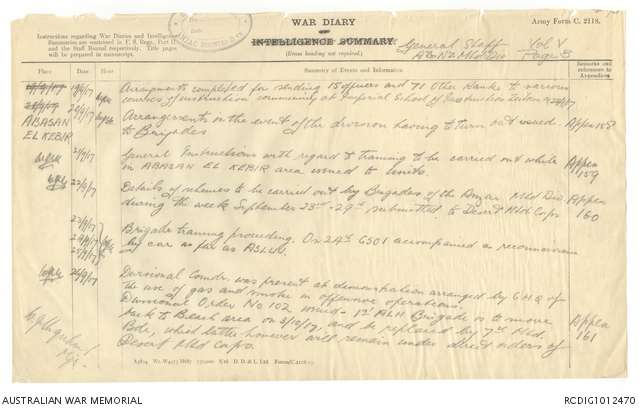 WAR DIARY
OF
INTELLIGENCE SUMMARY.
(Erase heading not required).
Army Form C. 2118.
Instructions regarding War Diaries and Intelligence
Summaries are contained in F. S. Regs., Part II.
and the Staff Manual respectively. Title pages
will be prepared in manuscript.
General Staff Vol V
A & NZ Mtd Div Page 8
Place Date Hour Summary of Events and Information Remarks and references to Appendices
Arrangements completed for sending 15 officers and 71 Other Ranks to various
courses of instruction commencing at Imperial School of Instruction Zeitoun
ABASAN
EL KEBIR
Arrangements in the event of the division having to turn out issued Appen 158
to Brigades
21/9/17 General Instructions with regard to training to be carried out while Appen
in ABASAN EL KEBIR area issued to Units. 159
22/9/17 Details of schemes to be carried out by Brigades of the Anzac Mtd Div Appen
during the week September 23rd - 29th submitted to Desert Mtd Corps 160
23/9/17
24/9/17
25/9/17
Brigade training proceeding. On 24th GSO1 accompanied a reconnaissance
by car as far as ASLUJ.
26/9/17 Divisional Comdr. was present at demonstration arranged by G.H.Q. of
the use of gas and smoke in offensive operations.
Divisional Order No 102 issued - 1st ALH Brigade is to move Appen
back to Beach area on 3/10/17, and be replaced by 7th Mtd. 161
Bde, which latter however will remain under direct orders of
Desert Mtd Corps.
D. D. & L. Ltd.
AUSTRALIAN WAR MEMORIAL
RCDIG1012470